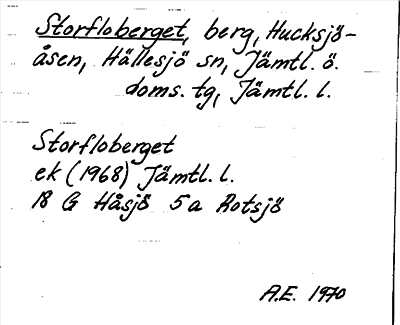 Storfloberget, berg, Hucksjö-
åsen, Hällesjö sn, Jämtl. ö.
doms. tg, Jämtl. l.
Storfloberget
ek (1968) Jämtl. l.
18 G Håsjö 5a Rotsjö
A.E. 1970